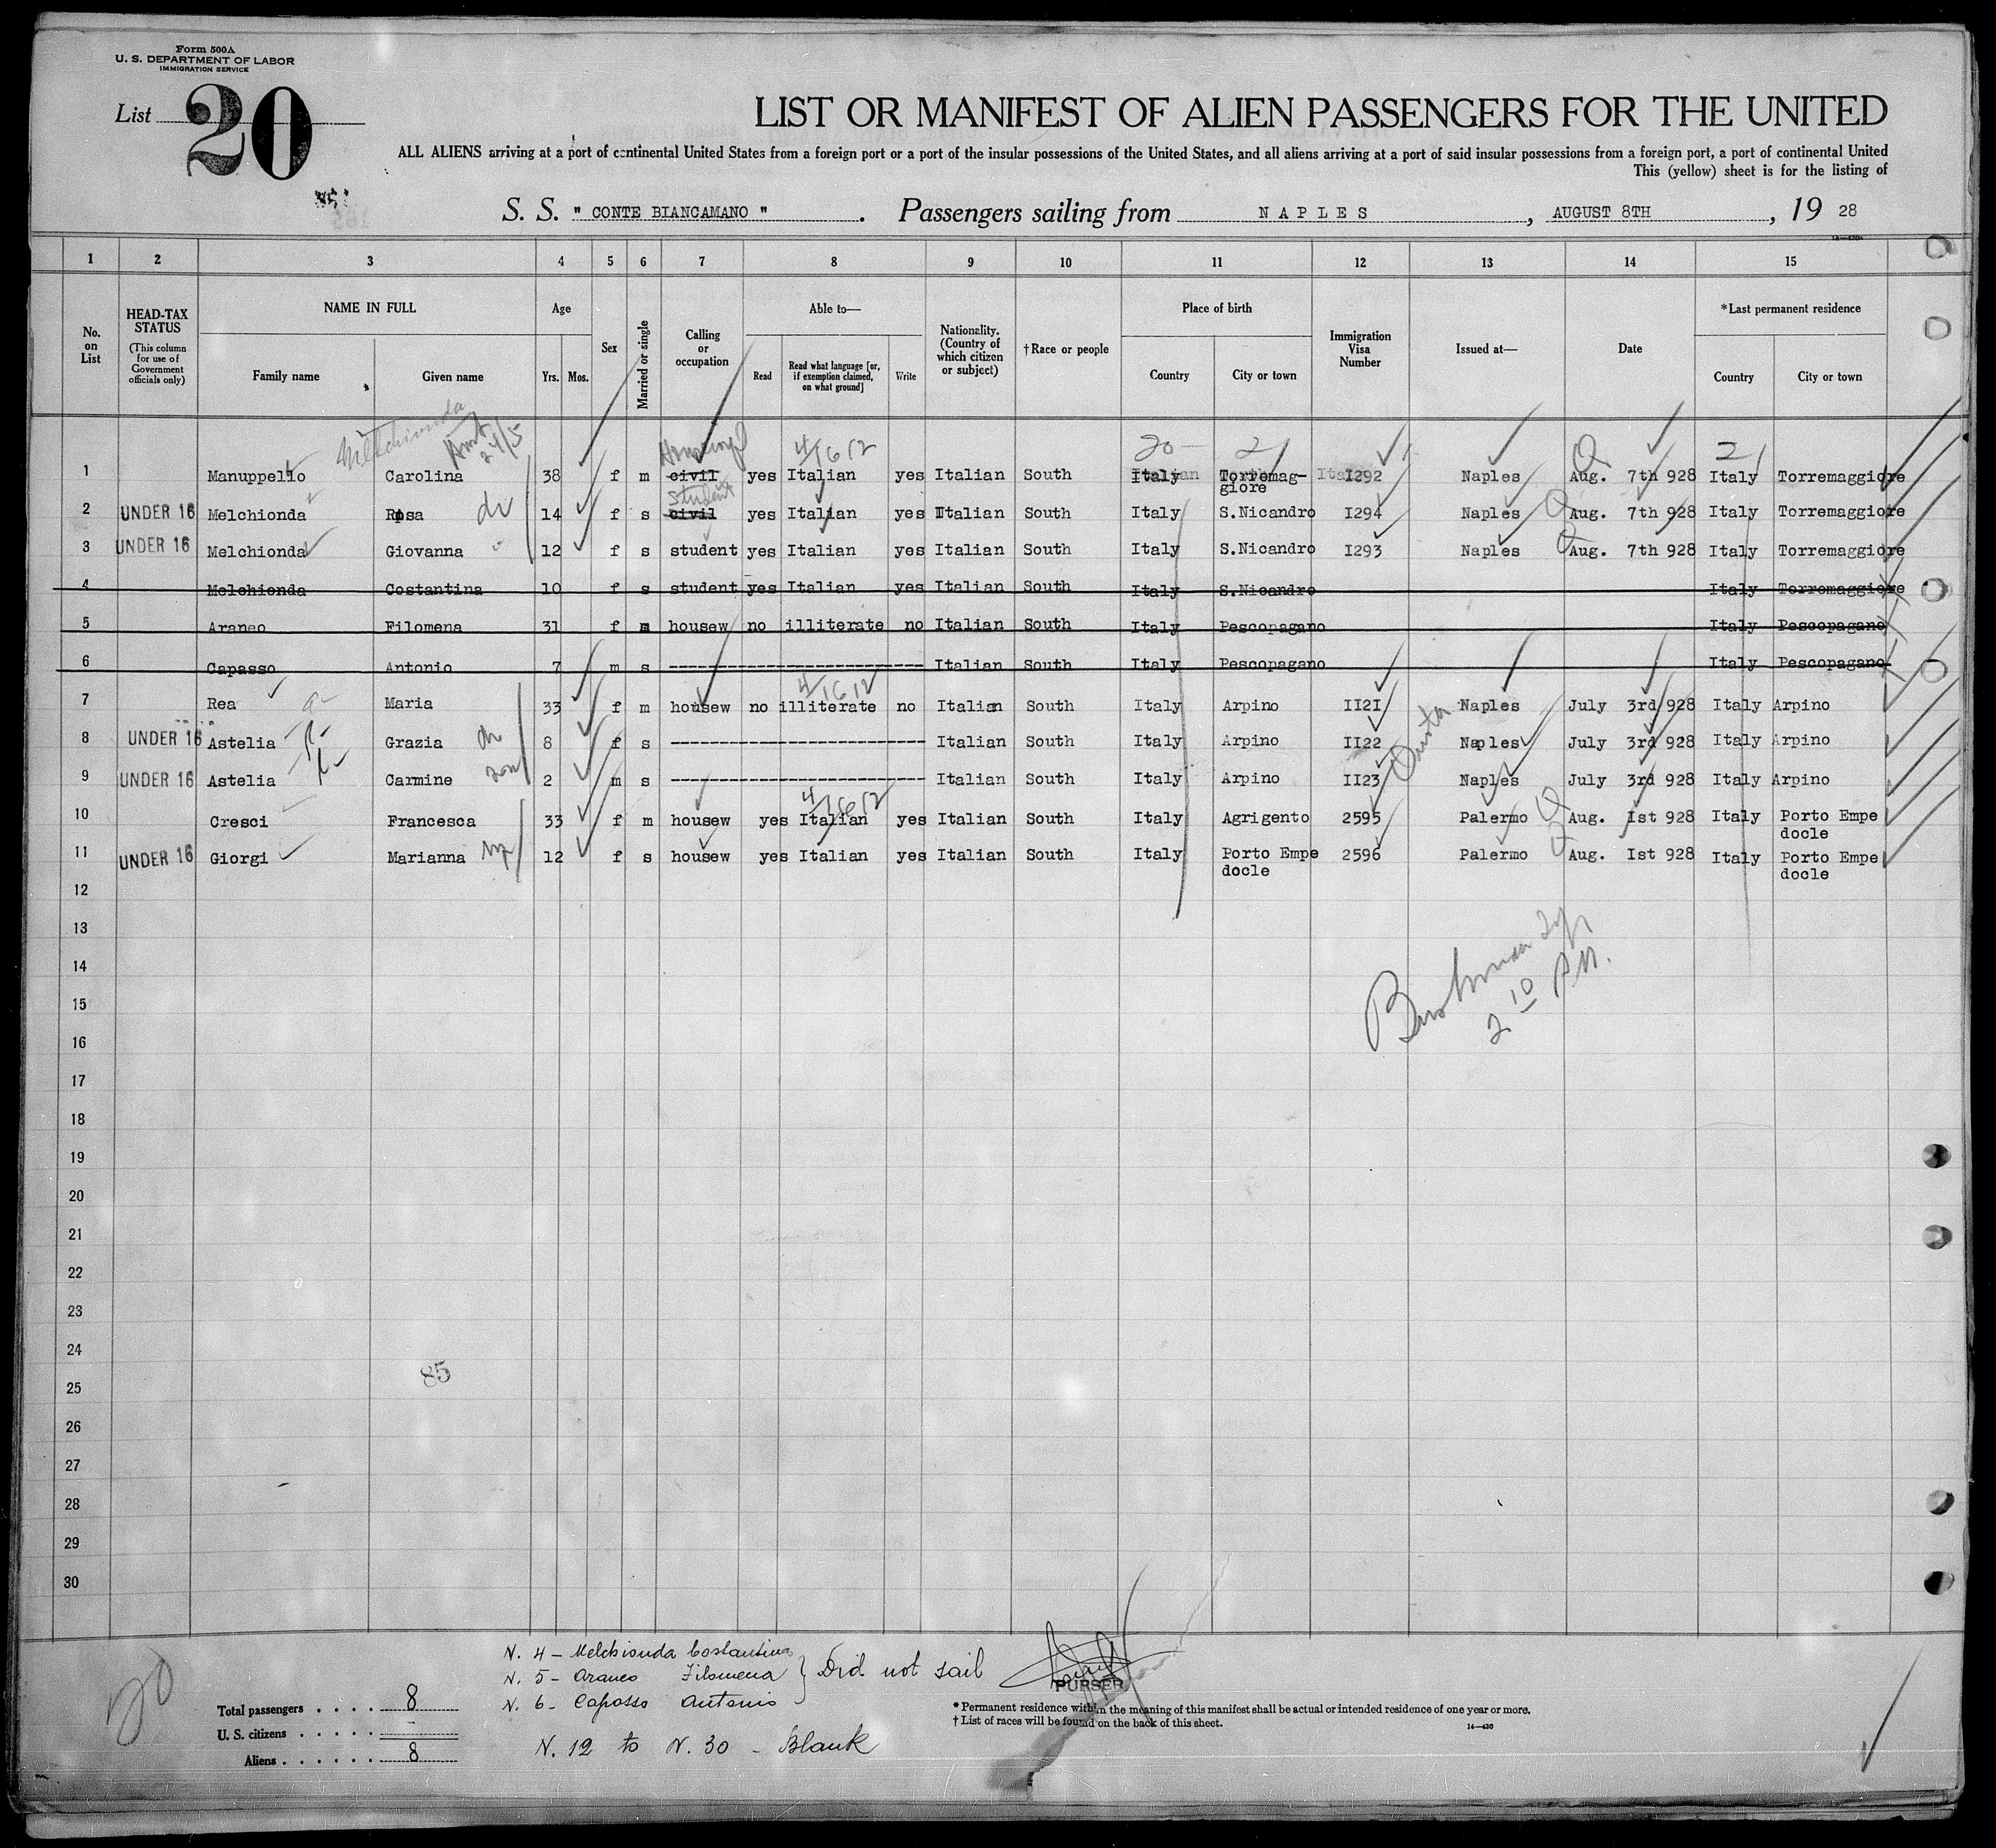 Form 500A
U. S. DEPARTMENT OF LABOR
IMMIGRATION SERVICE
List 20
LIST OR MANIFEST OF ALIEN PASSENGERS FOR THE UNITED
ALL ALIENS arriving at a port of continental United States from a foreign port or a port of the insular possessions of the United States, and all aliens arriving at a port of said insular possessions from a foreign port, a port of continental United
This (yellow) sheet is for the listing of
S. S. " CONTE BIANCAMANO " . Passengers sailing from NAPLES , AUGUST 8TH , 19 28
1 2 3 4 5 6 7 8 9 10 11 12 13 14 15
No. on List
HEAD-TAX STATUS (This column for use of Government officials only)
NAME IN FULL
Family name Given name
Age
Yrs. Mos.
Sex
Married or single
Calling or occupation
Able to—
Read Read what language [or, if exemption claimed, on what ground] Write
Nationality. (Country of which citizen or subject)
†Race or people
Place of birth
Country City or town
Immigration Visa Number
Issued at—
Date
*Last permanent residence
Country City or town
Melchionda 4/16 12 20 21 21
1 Manuppello Carolina 38 f m civil yes Italian yes Italian South Italy Torremag- giore I292 Naples Aug. 7th 928 Italy Torremaggiore
student
2 UNDER 16 Melchionda Rosa 14 f s civil yes Italian yes Italian South Italy S.Nicandro I294 Naples Aug. 7th 928 Italy Torremaggiore
3 UNDER 16 Melchionda Giovanna 12 f s student yes Italian yes Italian South Italy S.Nicandro I293 Naples Aug. 7th 928 Italy Torremaggiore
4 Melchionda Costantina 10 f s student yes Italian yes Italian South Italy S.Nicandro Italy Torremaggiore
5 Araneo Filomena 31 f m housew no illiterate no Italian South Italy Pescopagano Italy Pescopagano
6 Capasso Antonio 7 m s ---------- Italian South Italy Pescopagano Italy Pescopagano
4/16 12
7 Rea Maria 33 f m housew no illiterate no Italian South Italy Arpino II2I Naples July 3rd 928 Italy Arpino
8 UNDER 16 Astelia Grazia 8 f s ---------- Italian South Italy Arpino II22 Naples July 3rd 928 Italy Arpino
9 UNDER 16 Astelia Carmine son 2 m s ---------- Italian South Italy Arpino II23 Naples July 3rd 928 Italy Arpino
4/16 12
10 Cresci Francesca 33 f m housew yes Italian yes Italian South Italy Agrigento 2595 Palermo Aug. Ist 928 Italy Porto Empe docle
11 UNDER 16 Giorgi Marianna 12 f s housew yes Italian yes Italian South Italy Porto Empe docle 2596 Palermo Aug. Ist 928 Italy Porto Empe docle
12
13
14
15
16
17
18
19
20
21
22
23
24
25
26
27
28
29
30
2 10 P.M.
85
20
N. 4 - Melchionda Costantina
N. 5 - Araneo Filomena } Did not sail
N. 6 - Capasso Antonio
N. 12 to N. 30 - Blank
PURSER
Total passengers . . . . 8
U. S. citizens . . . . . -
Aliens . . . . . 8
* Permanent residence within the meaning of this manifest shall be actual or intended residence of one year or more.
† List of races will be found on the back of this sheet.
14—430